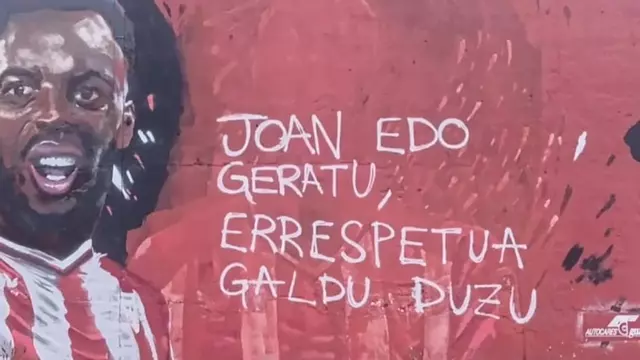 JOAN EDO
GERATU,
ERRESPETUA
GALDU DUZU
AUTOCARES